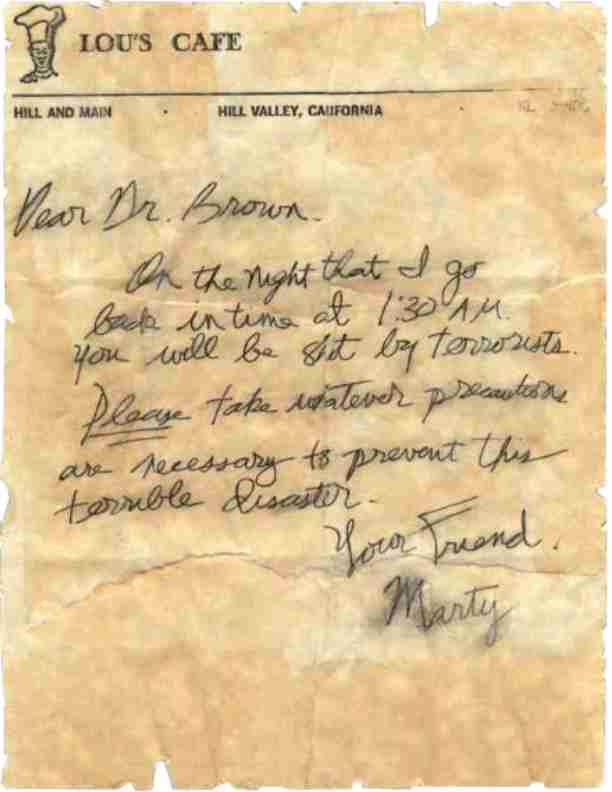 LOU'S CAFE
HILL AND MAIN · HILL VALLEY, CALIFORNIA
Dear Dr. Brown.
On the night that I go
back in time at 1:30 A.M.
you will be shot by terrorists.
Please take whatever precautions
are necessary to prevent this
terrible disaster.
Your Friend.
Marty